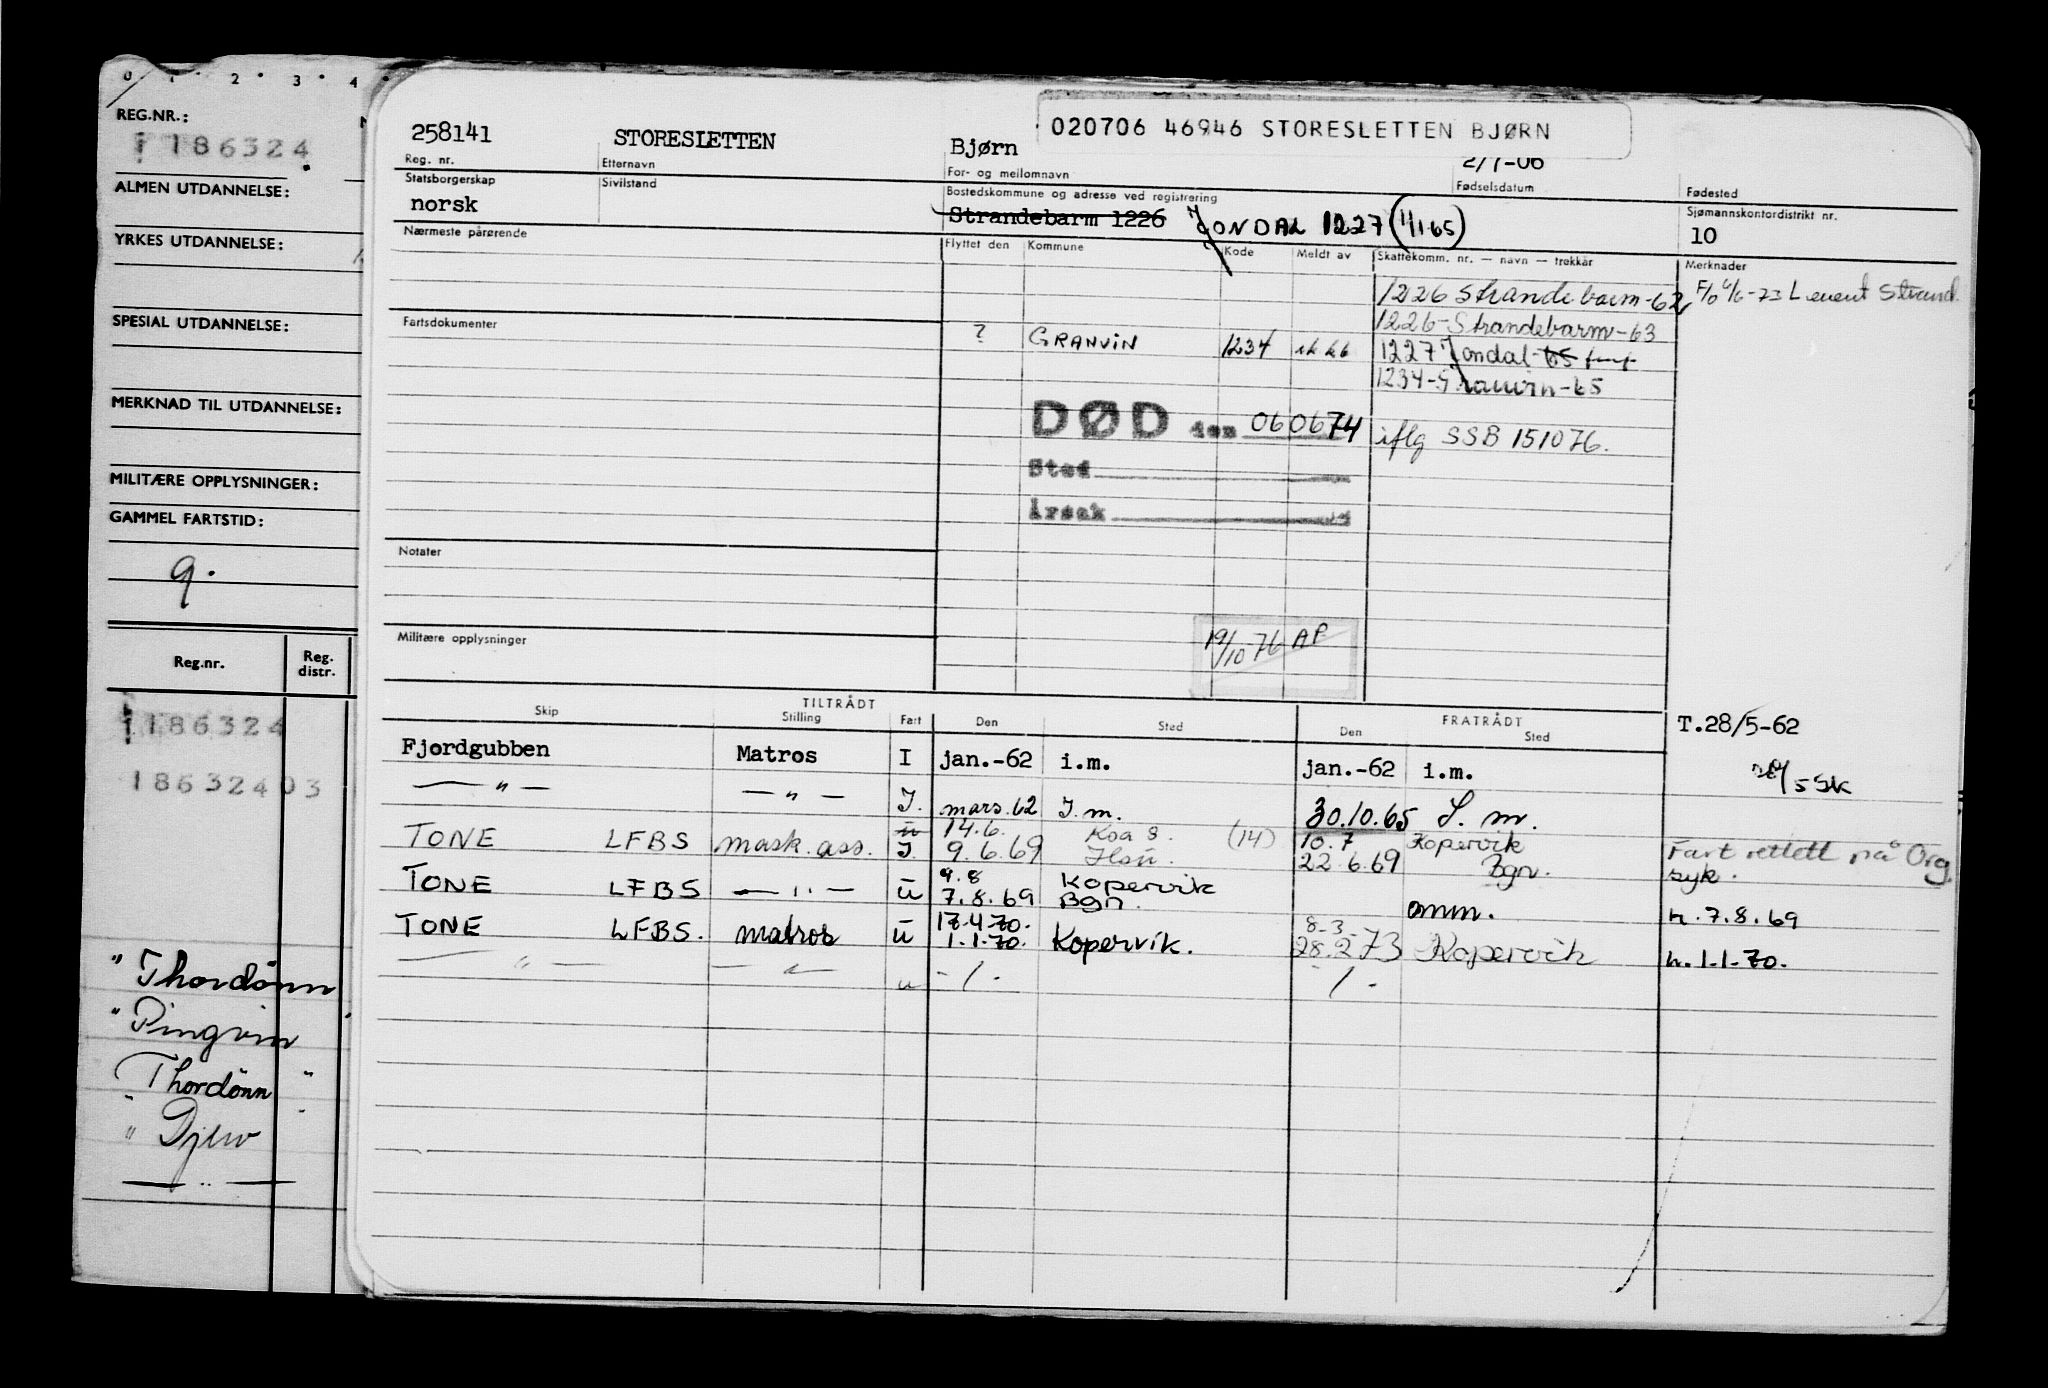 0 1 2 3 4
REG.NR.:
186324
ALMEN UTDANNELSE:
YRKES UTDANNELSE:
SPESIAL UTDANNELSE:
MERKNAD TIL UTDANNELSE:
MILITÆRE OPPLYSNINGER:
GAMMEL FARTSTID:
9.
Reg.nr. Reg. distr.
186324
18632403
" Thordönn
" Pingvin "
Thordönn "
" Djerv
— " —
258141 STORESLETTEN Bjørn
020706 46946 STORESLETTEN BJØRN
2/7-06
Reg. nr. Etternavn For- og mellomnavn Fødselsdatum Fødested
Statsborgerskap Sivilstand Bostedskommune og adresse ved registrering Sjømannskontordistrikt nr.
norsk Strandebarm 1226 JONDAL 1227 (1/1 65) 10
Nærmeste pårørende Flyttet den Kommune Kode Meldt av Skattekomm. nr. — navn — trekkår Merknader
1226 Strandebarm-62 F/O 4/6-73 Levert Strand
1226-Strandebarm-63
Fartsdokumenter ? GRANVIN 1234 1227 Jondal-65
1234-Granvin-65
DØD den 060674 iflg SSB 151076.
Sted
Årsak
Notater
Militære opplysninger
19/10-76 AP
TILTRÅDT FRATRÅDT
Skip Stilling Fart Den Sted Den Sted
T.28/5-62
Fjordgubben Matros I jan.-62 i.m. jan.-62 i.m.
— " — — " — I. mars.62 I.m. 30.10.65 I.m.
14.6. (14) 10.7 Kopervik
TONE LFBS mask.ass. I. 9.6.69 22.6.69 Bgn. Fart rettett på Org. syk.
9.8 Kopervik
TONE LFBS — " — u 7.8.69 Bgn. omm. h.7.8.69
17.4.70. 8-3-
TONE LFBS. matros u 1.1.70. Kopervik. 28.2.73 Kopervik h.1.1.70.
— " — — " — u -/- -/-